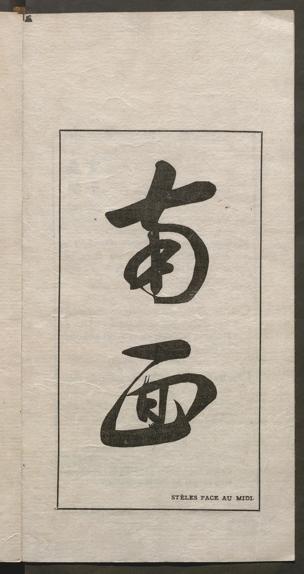 南
面
STÈLES FACE AU MIDI.